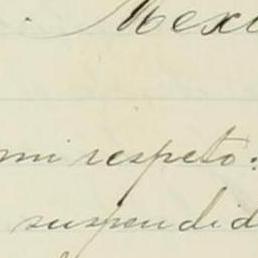 Mexi
mi respeto:
suspendid